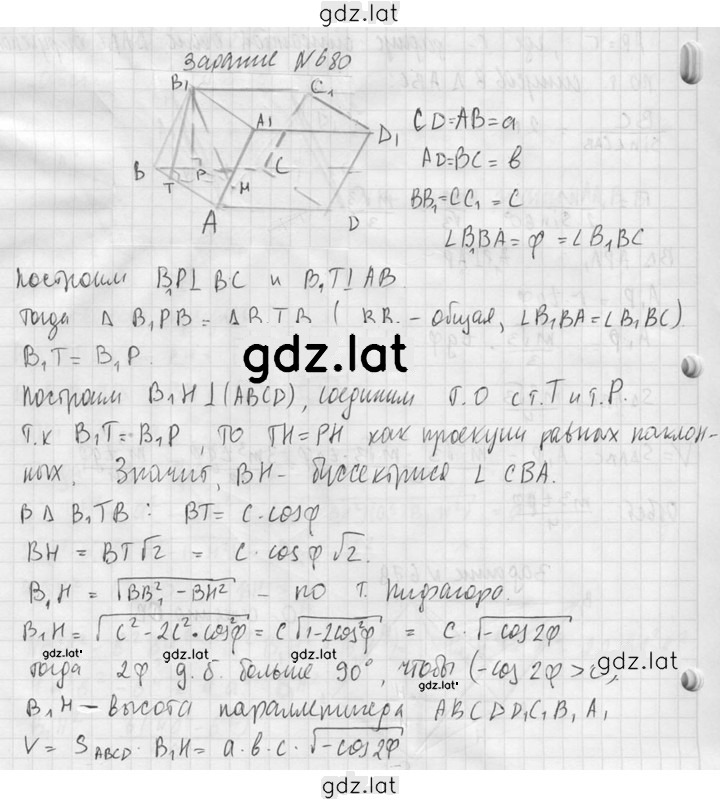 gdz.lat
Задание №680
B₁ C₁
A₁ D₁
B P C
T H
A D
CD=AB=a
AD=BC=b
BB₁=CC₁=c
∠B₁BA=φ=∠B₁BC
Построим B₁P⊥BC и B₁T⊥AB.
Тогда Δ B₁PB = ΔB₁TB ( BB₁ - общая, ∠B₁BA=∠B₁BC).
B₁T = B₁P.
gdz.lat
Построим B₁H⊥(ABCD), соединим т.О с т.T и т.P.
Т.к B₁T=B₁P, то TH=PH как проекции равных наклон-
ных. Значит, BH - биссектриса ∠CBA.
В Δ B₁TB: BT= c·cosφ
BH = BT√2 = c·cosφ√2.
B₁H = √BB₁²-BH² - по т. Пифагора.
B₁H=√c²-2c²·cos²φ = c√1-2cos²φ = c·√-cos2φ
gdz.lat gdz.lat gdz.lat
тогда 2φ д.б. больше 90°, чтобы (-cos2φ>0),
gdz.lat
B₁H - высота параллепипера ABCDD₁C₁B₁A₁
V = S_ABCD·B₁H = a·b·c·√-cos2φ
gdz.lat